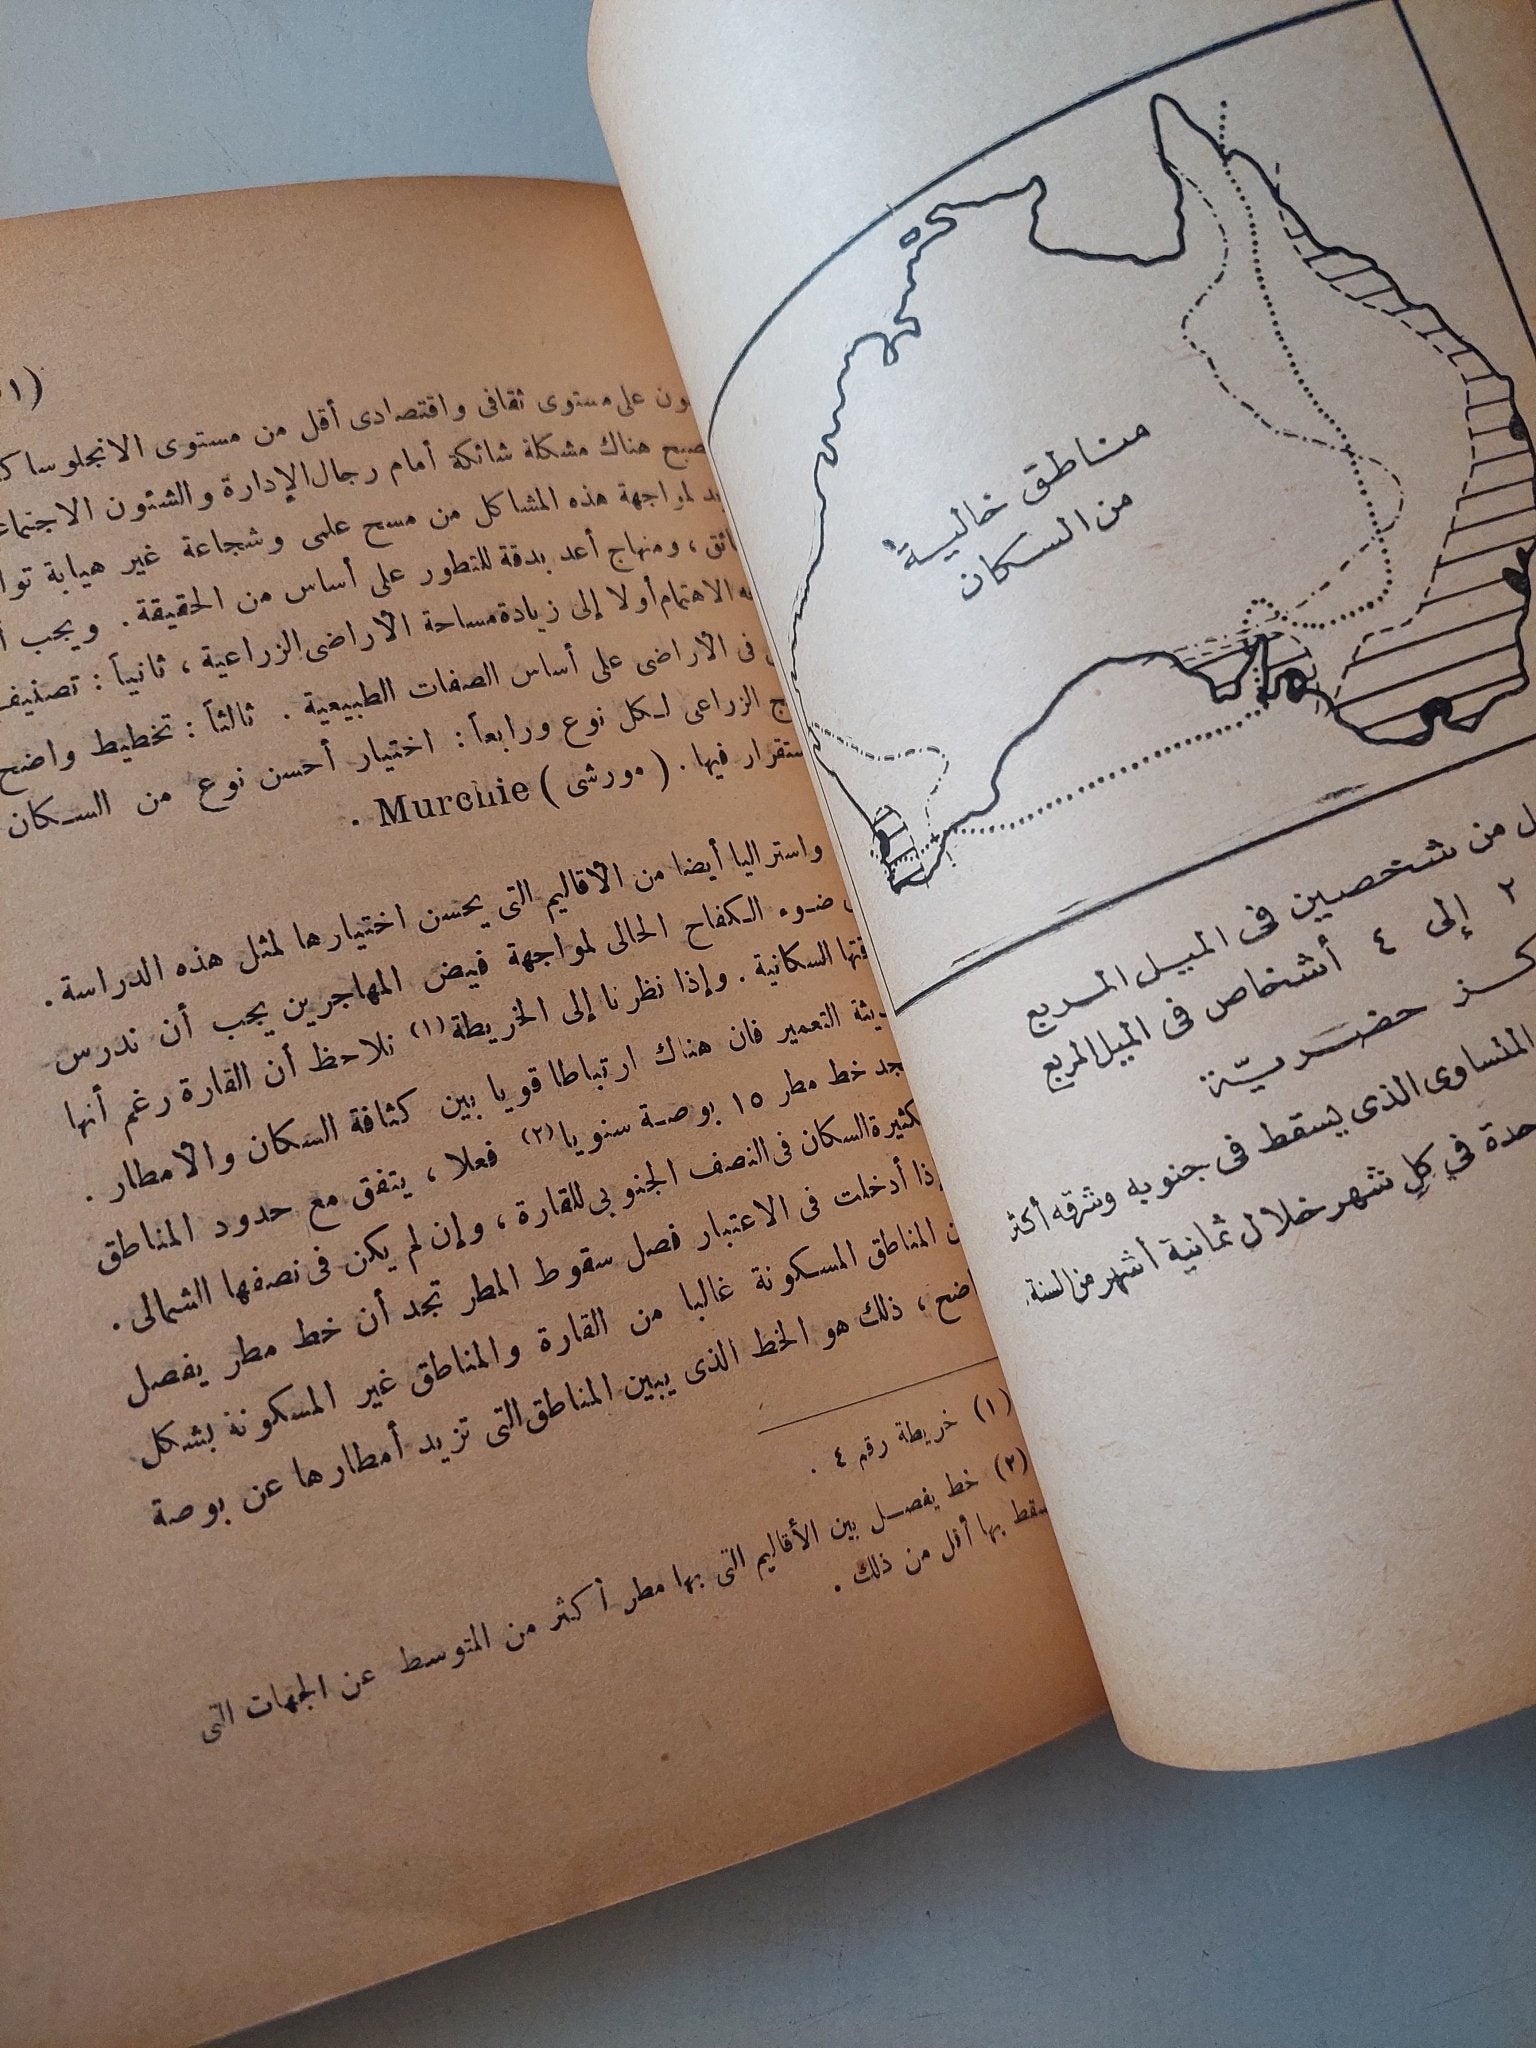 مناطق خالية
من السكان
من شخصين فى الميل المربع
٢ إلى ٤ أشخاص فى الميل المربع
حضرية
المتساوى الذى يسقط فى جنوبه وشرقه أكثر
فى كل شهر خلال ثمانية أشهر من السنة.
على مستوى ثقافى واقتصادى أقل من مستوى
هناك مشكلة شائكة أمام رجال الإدارة والشئون
لمواجهة هذه المشاكل من مسح علمى وشجاعة غير هيابة
، ومنهاج أعد بدقة للتطور على أساس من الحقيقة . ويجب
الاهتمام أولا إلى زيادة مساحة الأراضى الزراعية ، ثانياً :
فى الأراضى على أساس الصفات الطبيعية . ثالثاً : تخطيط واضح
الزراعى لكل نوع ورابعاً : اختيار أحسن نوع من السكان
فيها . ( مورشى ) Murchie .
واستراليا أيضا من الأقاليم التى يحسن اختيارها لمثل هذه الدراسة .
ضوء الكفاح الحالى لمواجهة فيض المهاجرين يجب أن ندرس
السكانية . وإذا نظرنا إلى الخريطة (١) نلاحظ أن القارة رغم أنها
التعمير فان هناك ارتباطا قويا بين كثافة السكان والأمطار .
خط مطر ١٥ بوصة سنويا (٢) فعلا ، يتفق مع حدود المناطق
السكان فى النصف الجنوبى للقارة ، وإن لم يكن فى نصفها الشمالى .
أدخلت فى الاعتبار فصل سقوط المطر تجد أن خط مطر يفصل
المناطق المسكونة غالبا من القارة والمناطق غير المسكونة بشكل
، ذلك هو الخط الذى يبين المناطق التى تزيد أمطارها عن بوصة
(١) خريطة رقم ٤ .
(٢) خط يفصل بين الأقاليم التى بها مطر أكثر من المتوسط عن الجهات التى
بها أقل من ذلك .